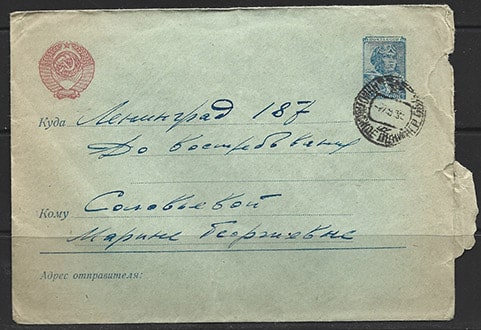 Куда Ленинград 187
До востребования
Кому Соловьевой
Марине Георгиевне
Адрес отправителя: